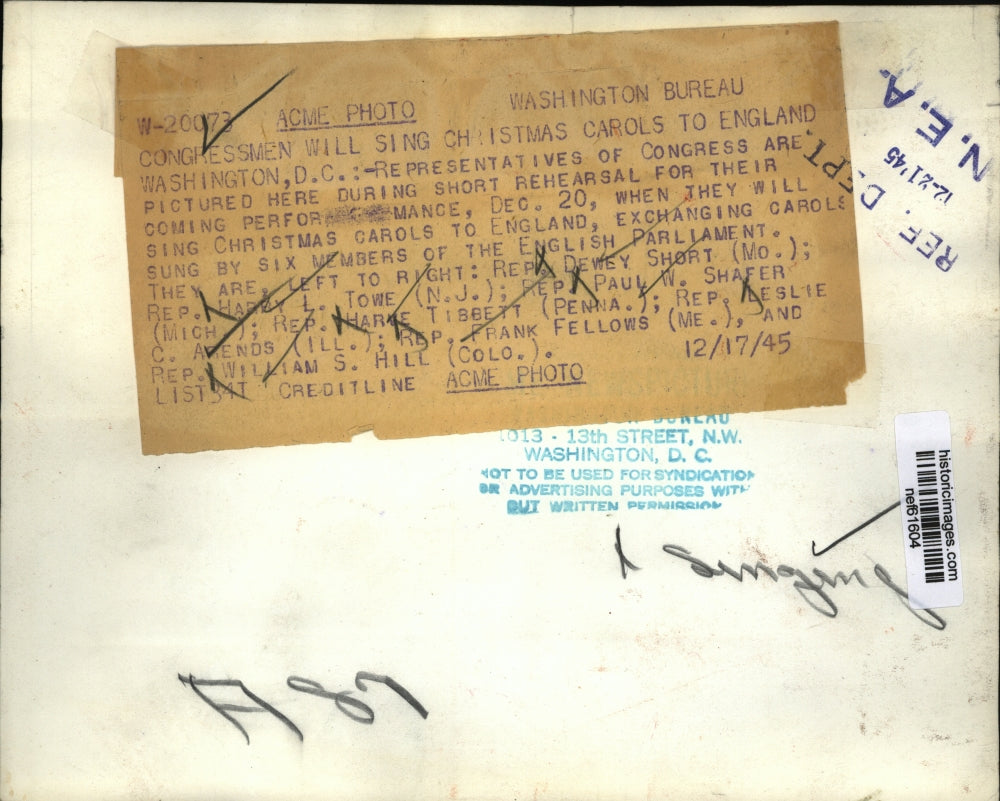 W-20073 ACME PHOTO WASHINGTON BUREAU
CONGRESSMEN WILL SING CHRISTMAS CAROLS TO ENGLAND
WASHINGTON, D.C.:-REPRESENTATIVES OF CONGRESS ARE
PICTURED HERE DURING SHORT REHEARSAL FOR THEIR
COMING PERFOR MANCE, DEC. 20, WHEN THEY WILL
SING CHRISTMAS CAROLS TO ENGLAND, EXCHANGING CAROLS
SUNG BY SIX MEMBERS OF THE ENGLISH PARLIAMENT.
THEY ARE, LEFT TO RIGHT: REP. DEWEY SHORT (MO.);
REP. HARRY L. TOWE (N.J.); REP. PAUL W. SHAFER
(MICH.); REP. HARVE TIBBETT (PENNA.); REP. LESLIE
C. ARENDS (ILL.); REP. FRANK FELLOWS (ME.), AND
REP. WILLIAM S. HILL (COLO.).
LIST CREDITLINE ACME PHOTO 12/17/45
REF. DEPT.
12-21'45
N.E.A.
BUREAU
1013 - 13th STREET, N.W.
WASHINGTON, D. C.
NOT TO BE USED FOR SYNDICATION
OR ADVERTISING PURPOSES WITH-
OUT WRITTEN PERMISSION
historicimages.com
nef61604
Singing